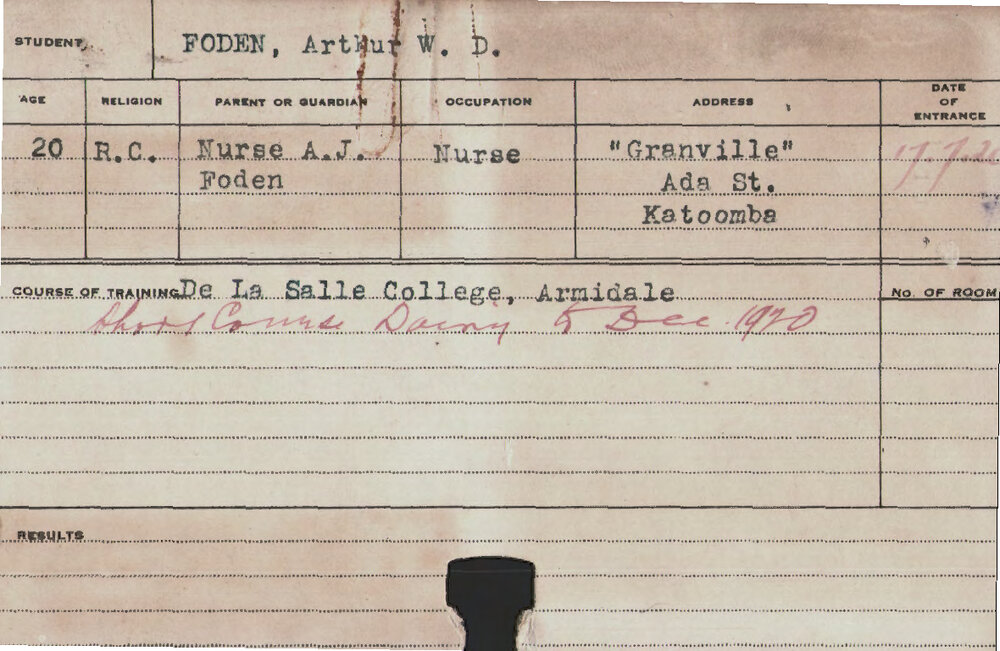 STUDENT FODEN, Arthur W. D.
AGE RELIGION PARENT OR GUARDIAN OCCUPATION ADDRESS DATE OF ENTRANCE
20 R.C. Nurse A.J. Nurse "Granville" 17.7.20
Foden Ada St.
Katoomba
COURSE OF TRAINING De La Salle College, Armidale No. OF ROOM
Short Course Dairy 5 Dec. 1920
RESULTS